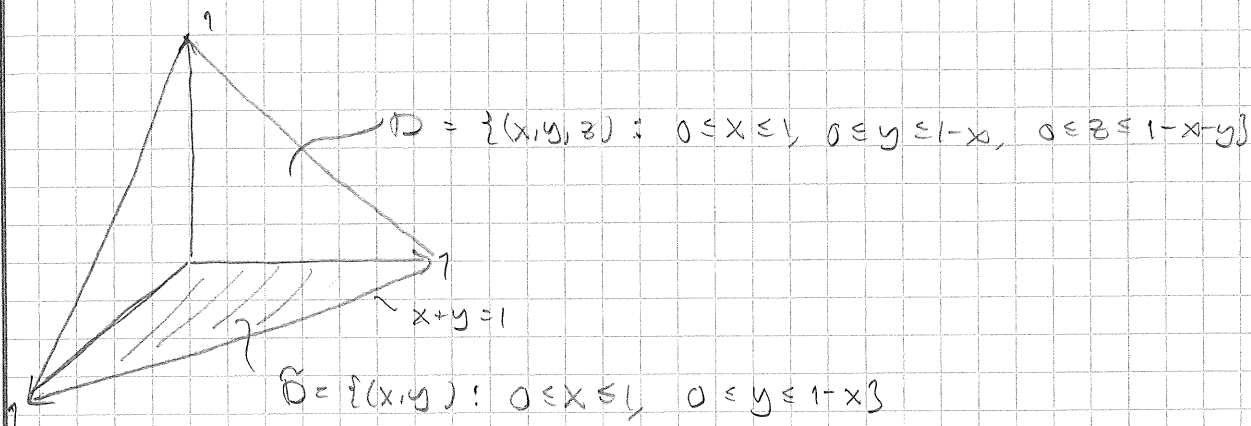 1
D = {(x,y,z) : 0 ≤ x ≤ 1, 0 ≤ y ≤ 1-x, 0 ≤ z ≤ 1-x-y}
1
x+y=1
D̃ = {(x,y) : 0 ≤ x ≤ 1, 0 ≤ y ≤ 1-x}
1